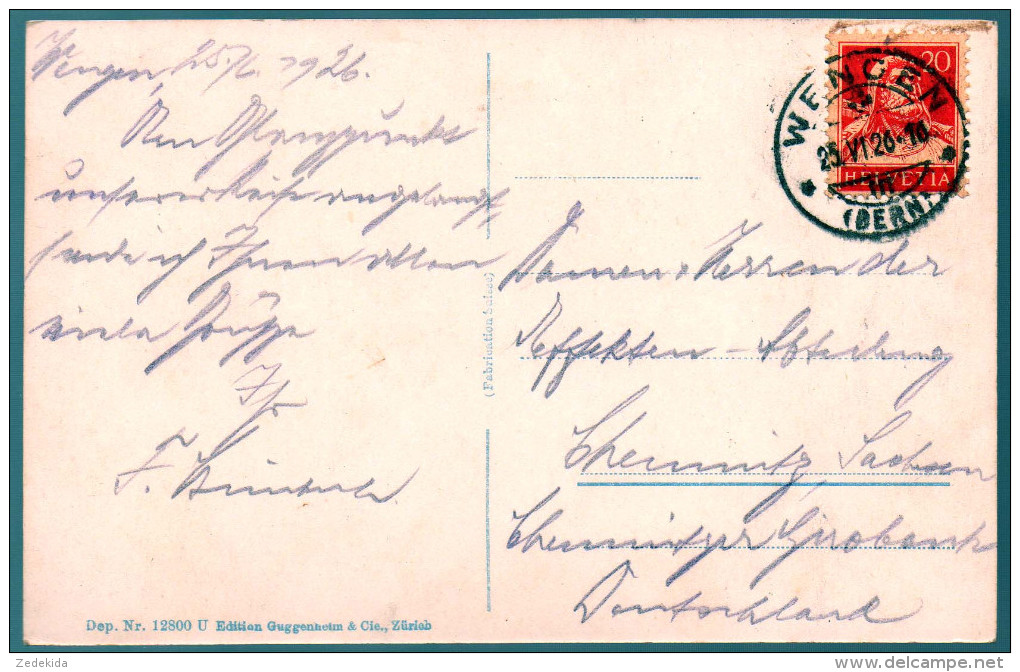 Wengen, 25./6. 1926.
Am Glanzpunkt
unserer Reise angelangt,
sende ich Ihnen allen
viele Grüße
Ihr
F.
(Fabrication Suisse)
20
HELVETIA
WENGEN
25.VI.26
(BERN)
Damen u Herren der
Effekten - Abteilung
Chemnitz, Sachsen
Chemnitzer Girobank
Deutschland
Dep. Nr. 12800 U Edition Guggenheim & Cie., Zürich
Zedekida
delcampe.net